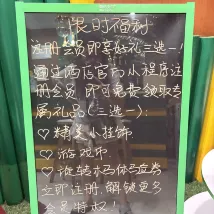 限时福利
注册会员即享好礼三选一!
通过酒店官方小程序注
册会员 即可免费领取专
属礼品(三选一):
♡ 精美小挂饰
♡ 游戏币
♡ 旋转木马体验券
立即注册,解锁更多
会员特权!